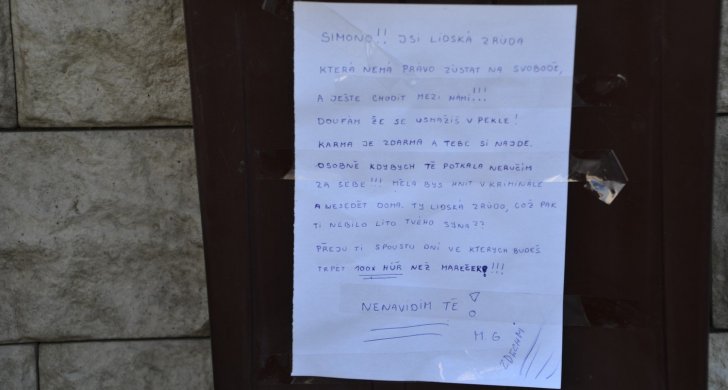 SIMONO!! JSI LIDSKÁ ZRŮDA
KTERÁ NEMÁ PRÁVO ZŮSTAT NA SVOBODĚ,
A JEŠTĚ CHODIT MEZI NÁMI!!!
DOUFAM ŽE SE USMAŽIŠ V PEKLE!
KARMA JE ZDARMA A TEBE SI NAJDE.
OSOBNĚ KDYBYCH TĚ POTKALA NERUČIM
ZA SEBE!!! MĚLA BYS HNIT V KRIMINÁLE
A NESEDĚT DOMA. TY LIDSKÁ ZRŮDO, COŽ PAK
TI NEBILO LÍTO TVÉHO SYNA??
PŘEJU TI SPOUSTU DNÍ VE KTERÝCH BUDEŠ
TRPĚT 100X HŮŘ NEŽ MAREČEK!!!!
NENAVIDÍM TĚ!
M. G.